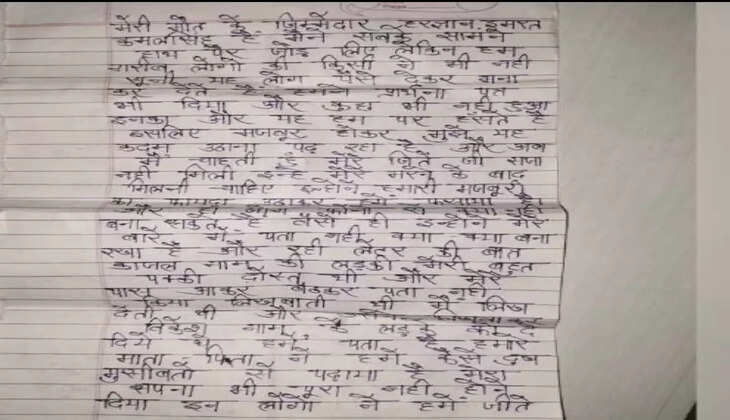 मेरी मौत के जिम्मेदार हरज्ञान, इमरत
कमलसिंह है, मैने सबके सामने
हाथ पैर जोड़ लिए लेकिन हम
गरीब लोगो की किसी ने भी नही
सुनी यह लोग पैसे देकर मना
कर देते है हमने प्रार्थना पत्र
भी दिया और कुछ भी नही हुआ
इनका और यह हम पर हसते है
इसलिए मजबूर होकर मुझे यह
कदम उठाना पढ़ रहा है, और अब
में चाहती हूँ मेरे जिते जी सजा
नही मिली इन्हे मेरे मरने के बाद
मिलनी चाहिए इन्होने हमारी मजबूरी
का फायदा उठाकर हमे फसाया है।
और
बना सकते है वैसे ही इन्होने मेरे
बारे में पता नही क्या क्या बना
रखा है और रही लेटर की बात
काजल नाम की लड़की मेरी बहुत
पक्की दोस्त थी और मेरे
पास आकर बैठकर पता नही
क्या लिखवाती थी में लिख
देती थी और
नाम के लड़के को दे
दिये थे हमे पता है हमारे
माता पिता ने हमे कैसे दुख
मुसीबतो से पढ़ाया है मेरा
सपना भी पूरा नही होने
दिया इन लोगो ने हमे जीते